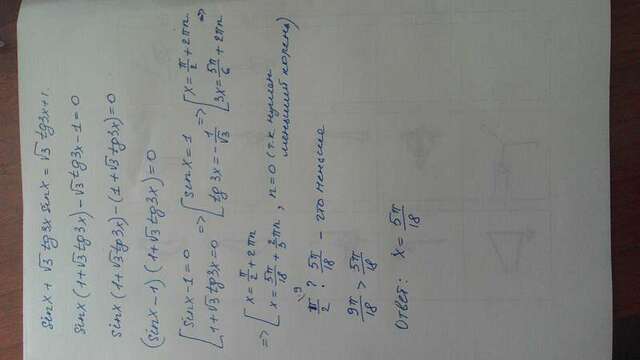 sin x + √3 tg3x sin x = √3 tg3x + 1.
sin x (1 + √3 tg3x) - √3 tg3x - 1 = 0
sin x (1 + √3 tg3x) - (1 + √3 tg3x) = 0
(sin x - 1) (1 + √3 tg3x) = 0
[ sin x - 1 = 0 ; 1 + √3 tg3x = 0 => [ sin x = 1 ; tg 3x = - 1/√3 => [ x = π/2 + 2πn ; 3x = 5π/6 + 2πn =>
=> [ x = π/2 + 2πn ; x = 5π/18 + 2/3 πn , n = 0 (т.к нужен меньший корень)
π/2 \9 ? 5π/18 - что меньше
9π/18 > 5π/18
Ответ: x = 5π/18